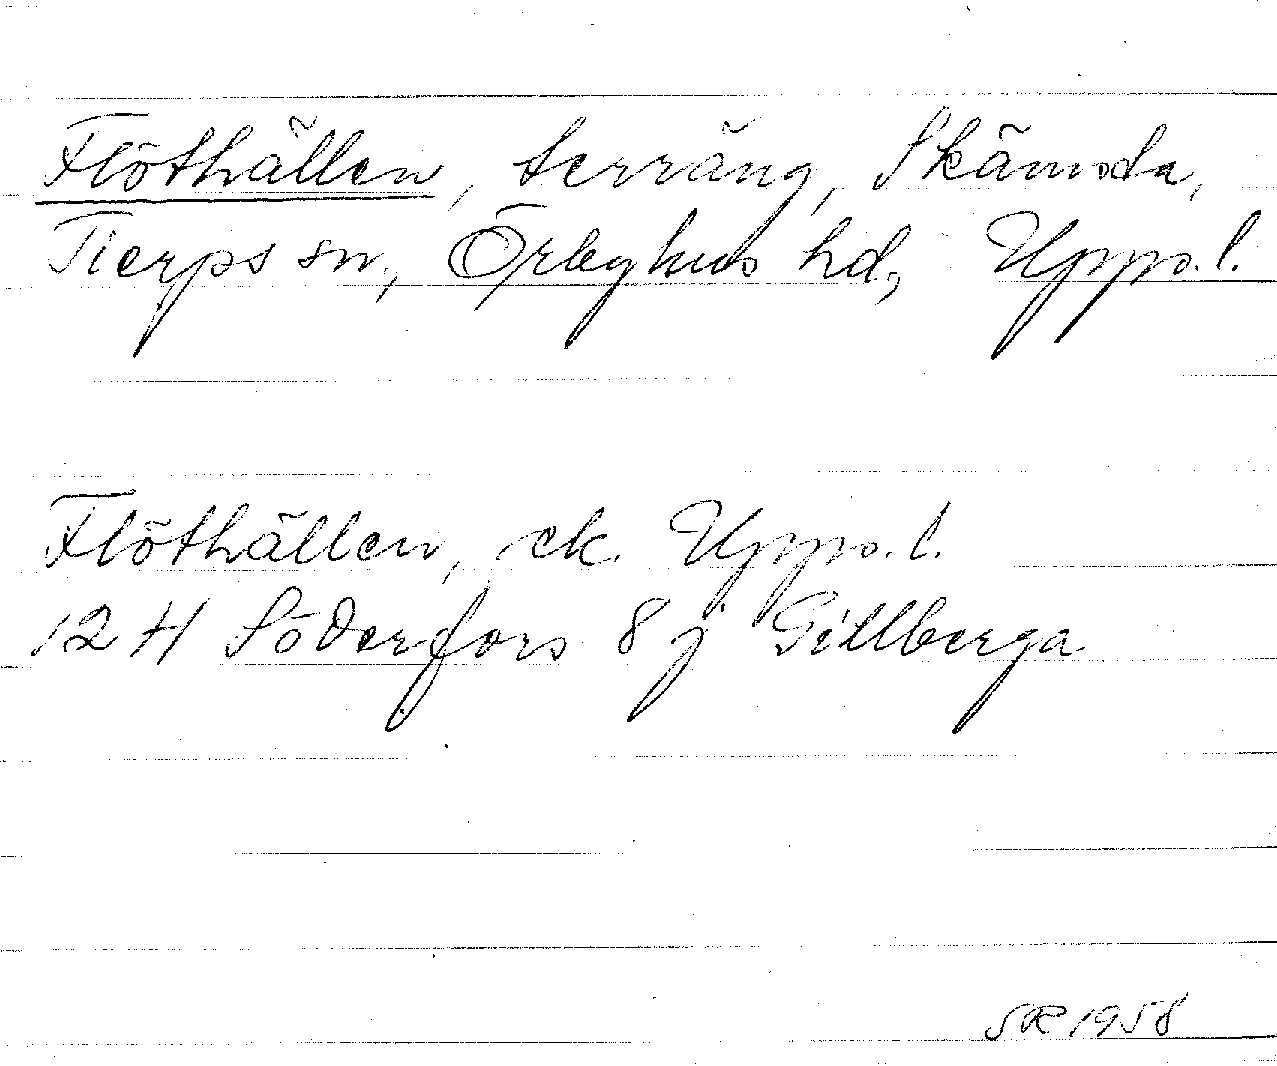 Flöthällen, terräng, Skämsta,
Tierps sn, Örbyhus hd, Upps. l.
Flöthällen, ek. Upps. l.
12 H Söderfors 8 j Gillberga
SR 1958